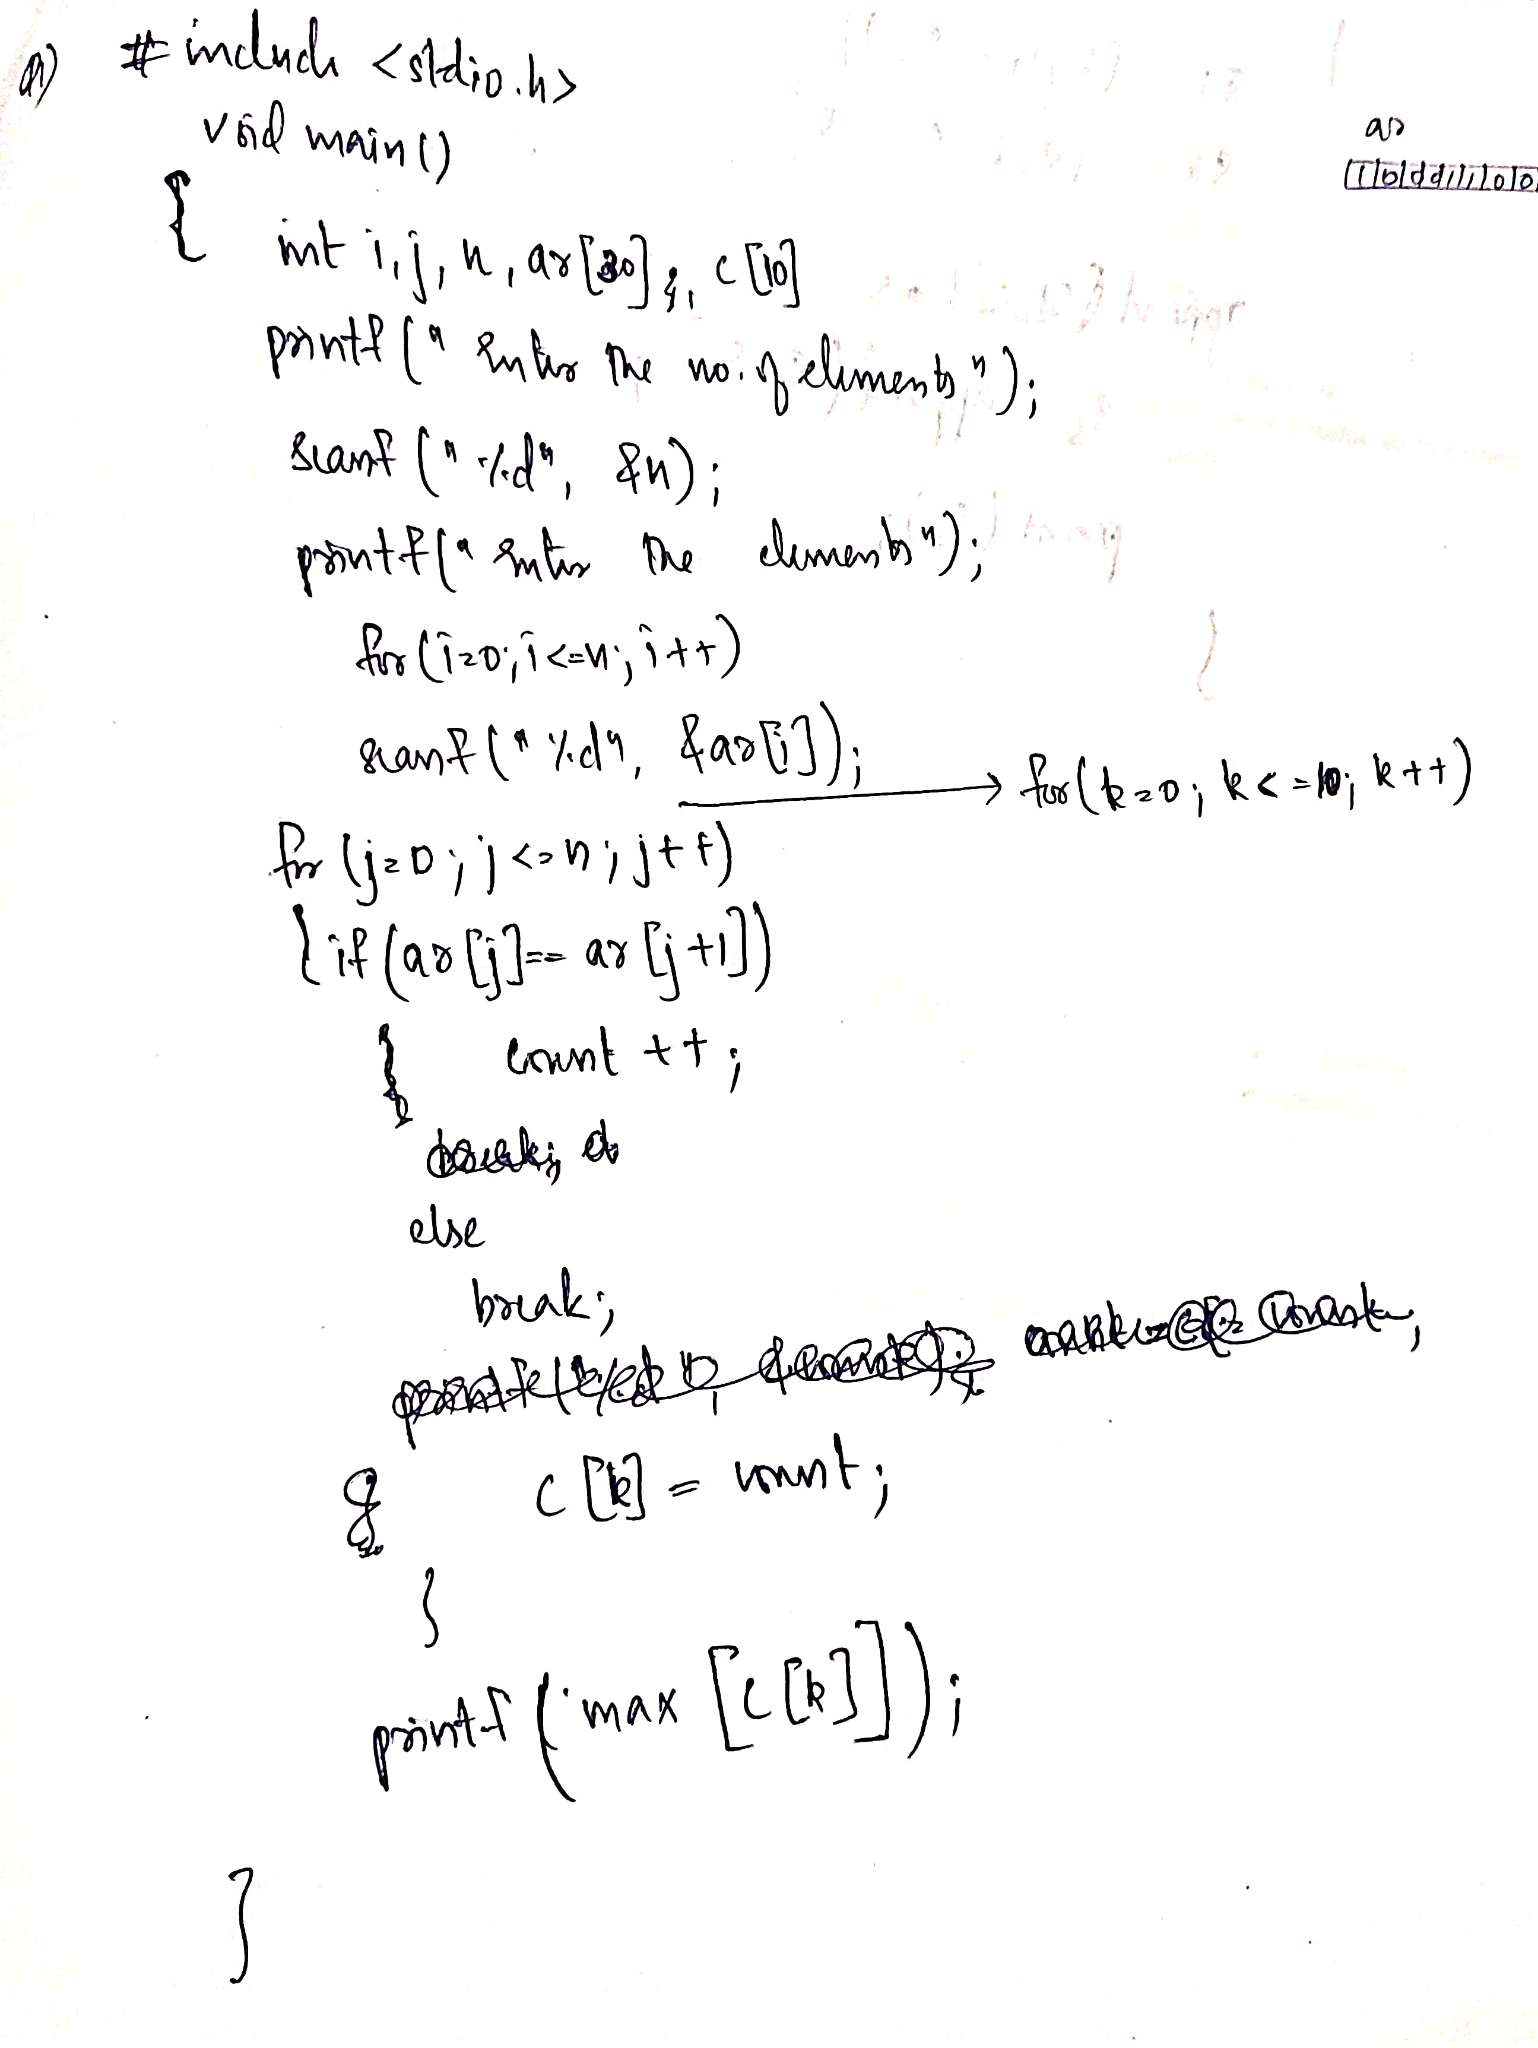 a) #include <stdio.h>
void main()
{
int i,j,n,ar[30], c[10]
printf(" Enter the no. of elements");
scanf("%d", &n);
printf(" Enter the elements");
for(i=0;i<=n;i++)
scanf("%d", &ar[i]);
for(k=0; k<=10; k++)
for(j=0;j<=n;j++)
{ if(ar[j]== ar[j+1])
{ count ++;
else
break;
c[k] = count;
}
printf(max[c[k]]);
}
ar